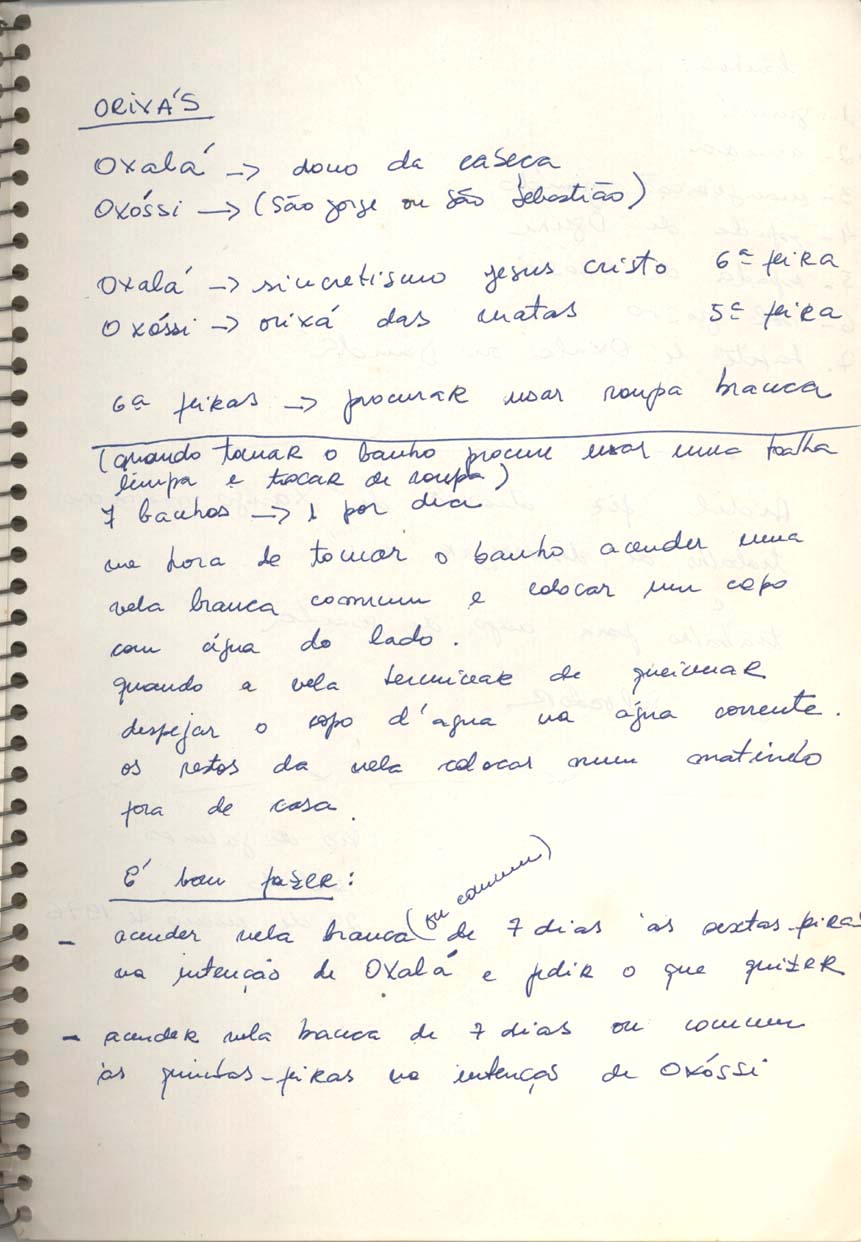 ORIXÁ'S
Oxalá -> dono da cabeça
Oxóssi -> (São Jorge ou São Sebastião)
Oxalá -> sincretismo Jesus Cristo 6ª feira
Oxóssi -> orixá das matas 5ª feira
6ª feiras -> procurar usar roupa branca
(quando tomar o banho procure usar uma toalha
limpa e trocar de roupa)
7 banhos -> 1 por dia
na hora de tomar o banho acender uma
vela branca comum e colocar um copo
com água do lado.
quando a vela terminar de queimar
despejar o copo d'agua na água corrente.
os restos da vela colocar num matinho
fora de casa.
É bom fazer:
- acender vela branca (ou comum) de 7 dias às sextas-feiras
na intenção de Oxalá e pedir o que quizer
- acender vela banca de 7 dias ou comum
às quintas-feiras na intenção de Oxóssi